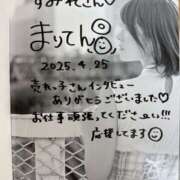 すみれさん♡
まりてん
2025.4.25
売れっ子さんインタビュー
ありがとうございました♥
お仕事頑張ってくださーい!!!
応援してます☺